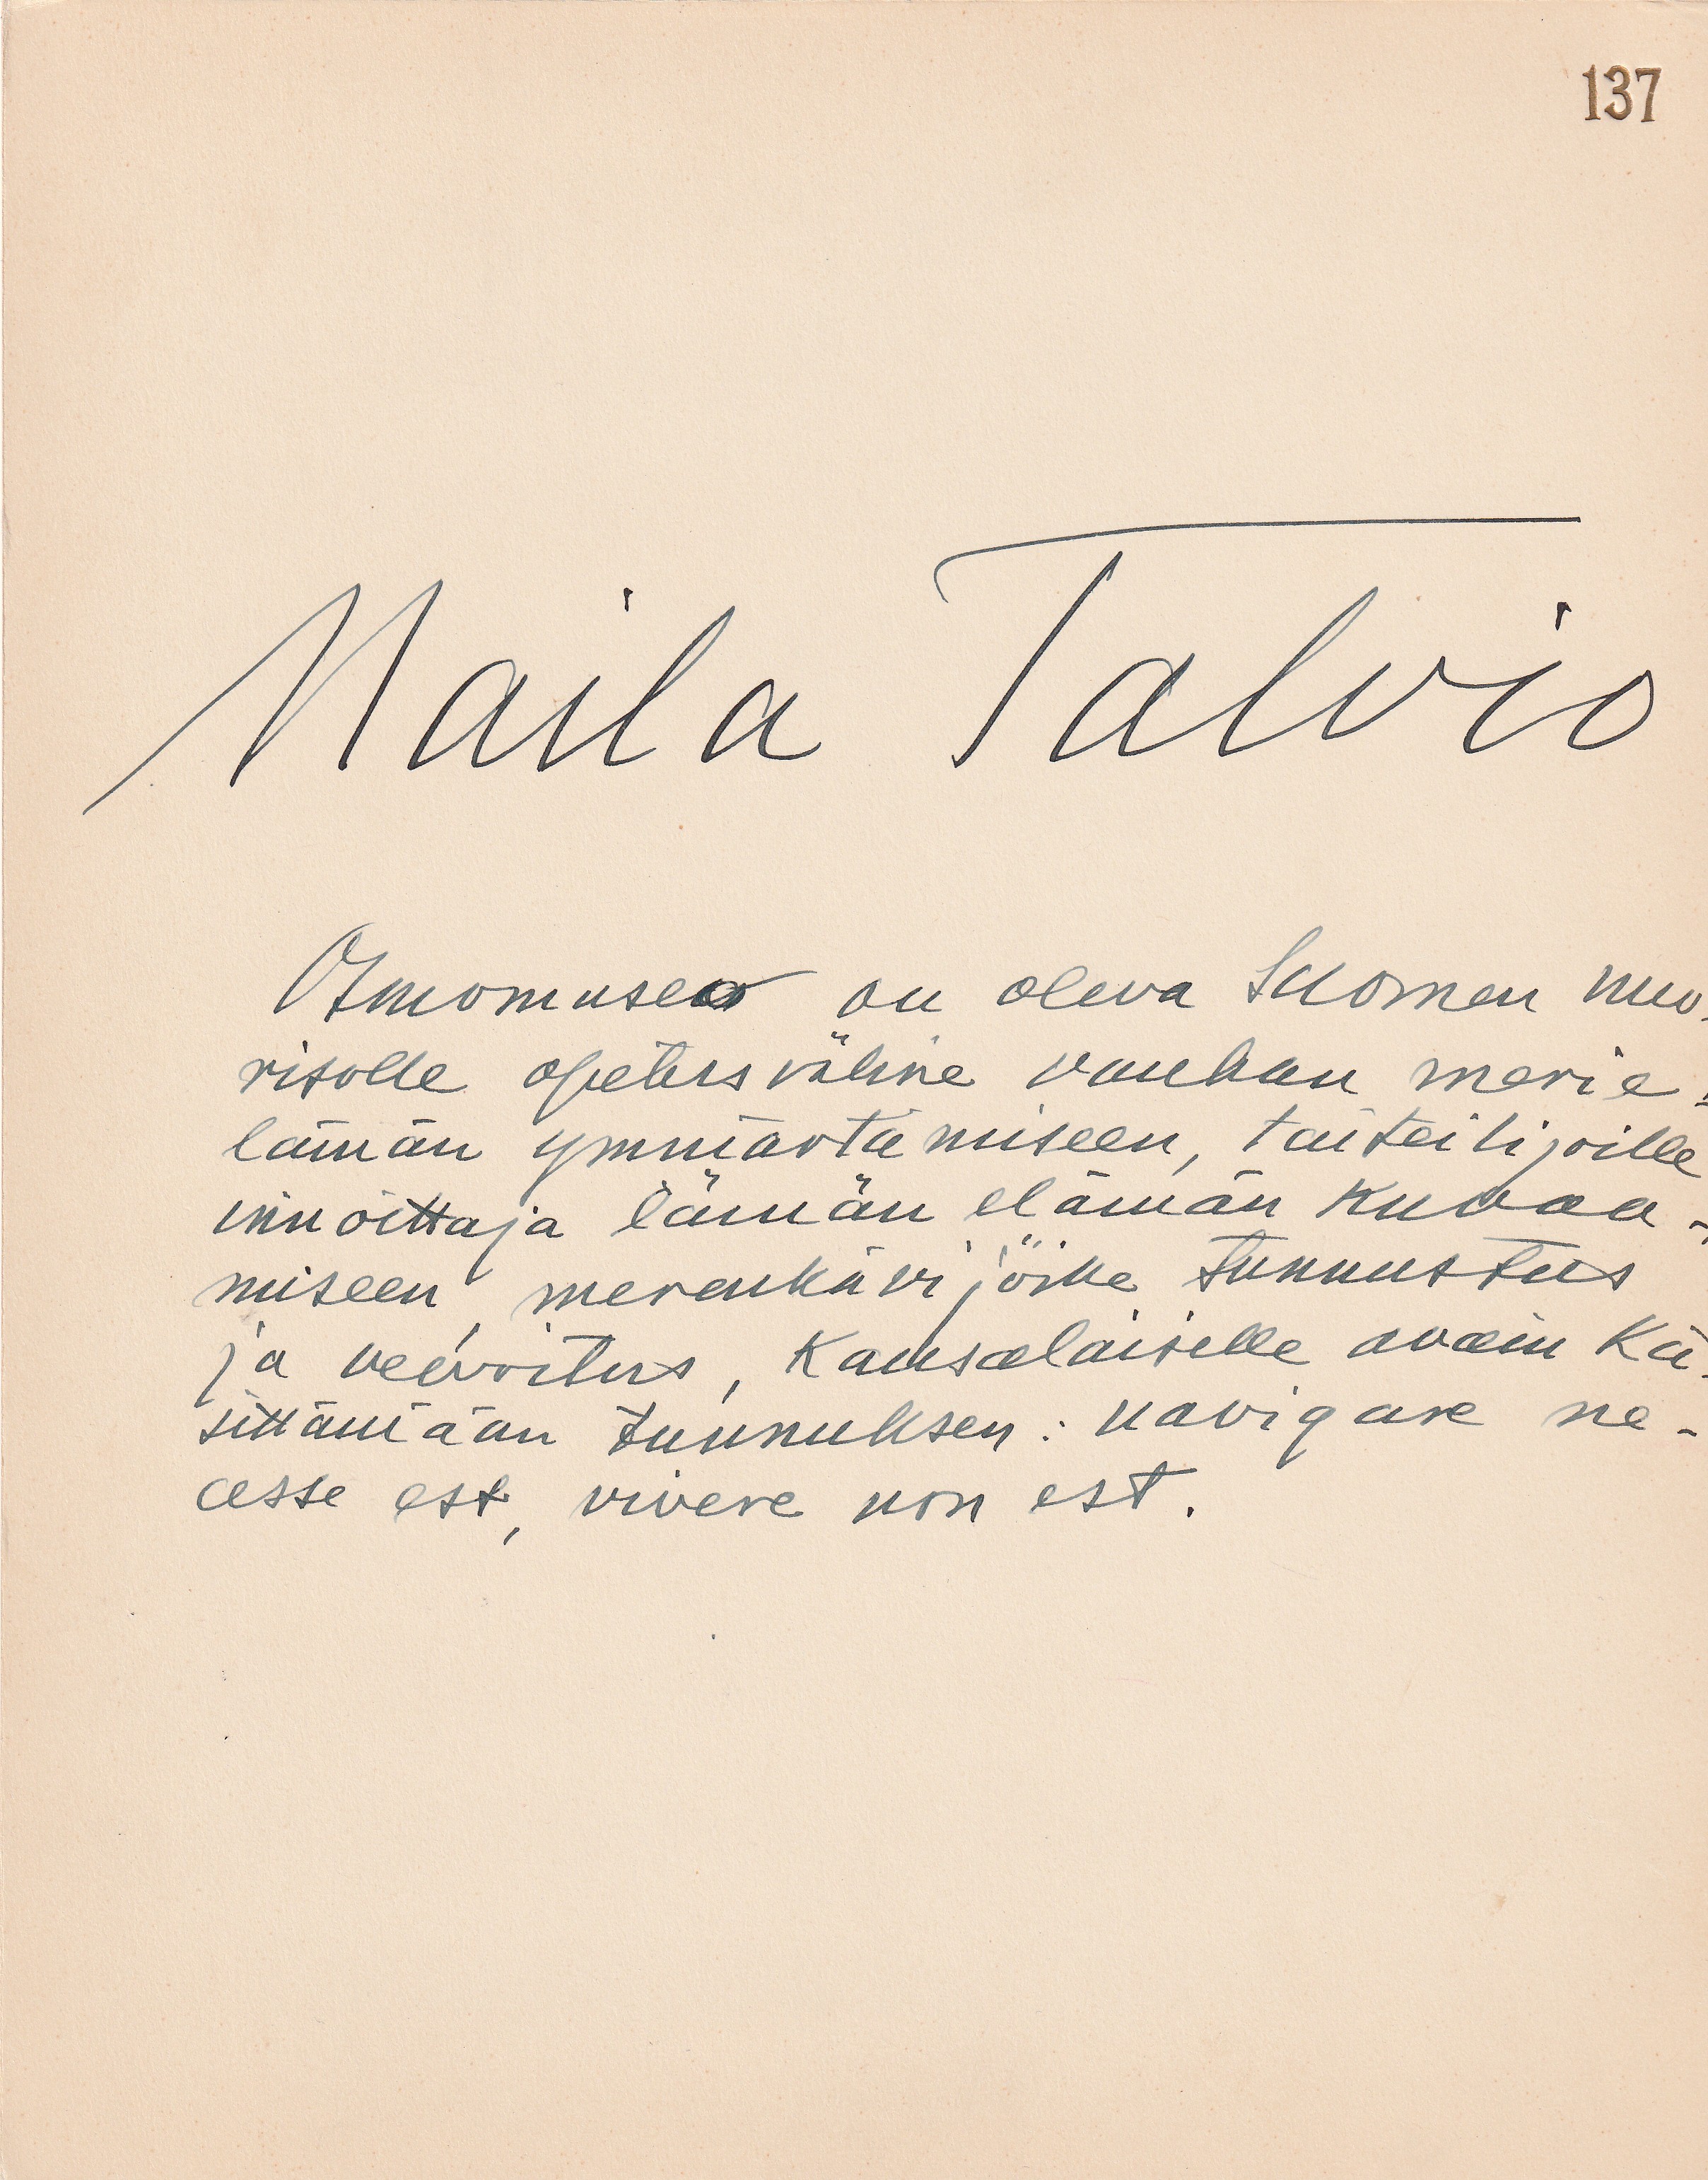 137
Maila Talvio
Osmomuseo on oleva Suomen nuo-
risolle opetusväline vanhan merie-
lämän ymmärtämiseen, taiteilijoille
innoittaja tämän elämän kuvaa-
miseen, merenkävijöille tunnustus
ja velvoitus, kansalaiselle avain kä-
sittämään tunnuksen: navigare ne-
cesse est, vivere non est.